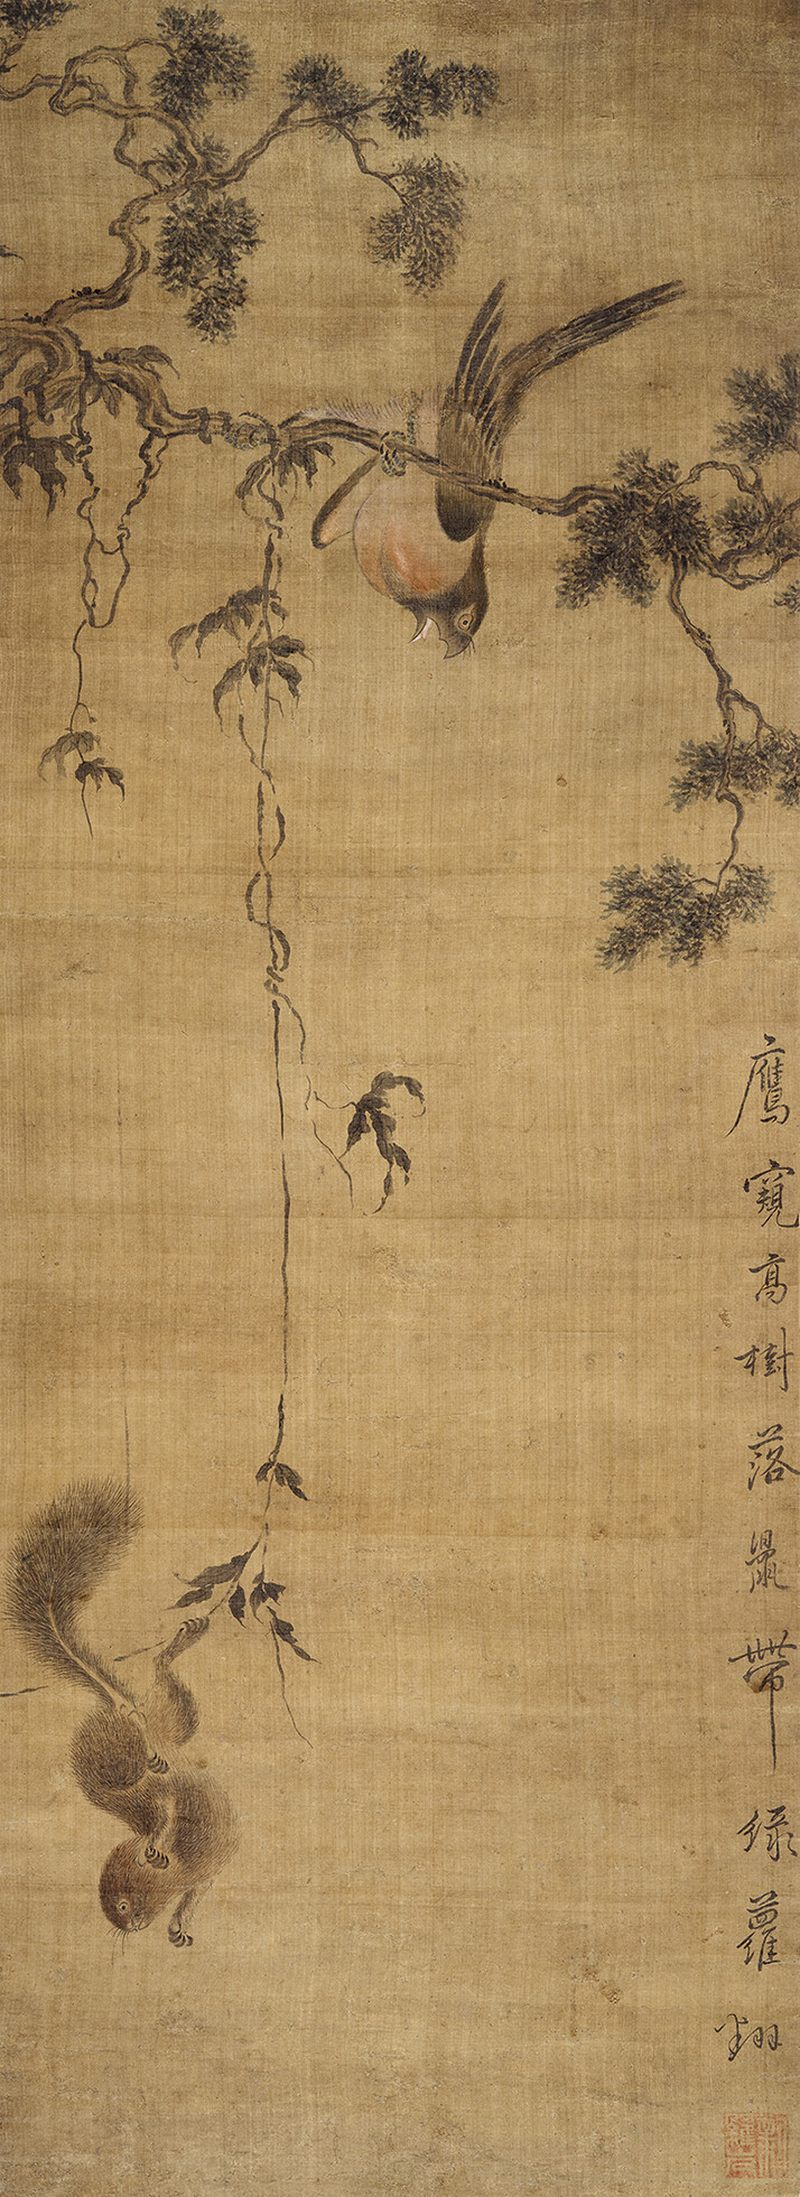 鷹窺高樹落鼠帶綠蘿翔